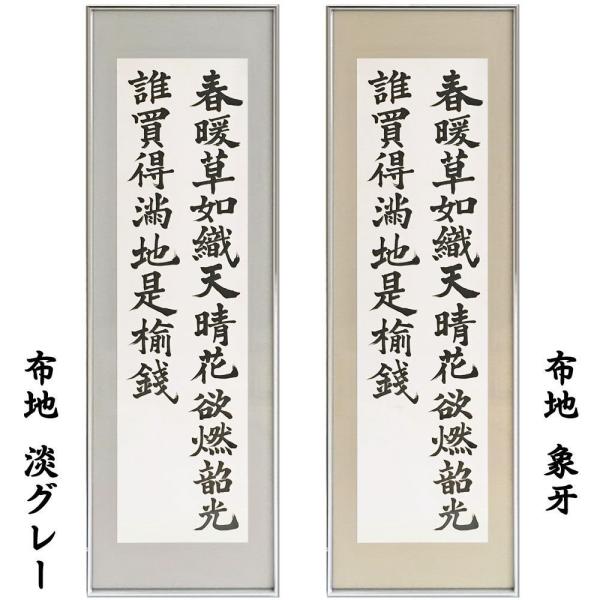 春暖草如織天晴花欲燃韶光
誰買得滿地是榆錢
布地 象牙
春暖草如織天晴花欲燃韶光
誰買得滿地是榆錢
布地 淡グレー